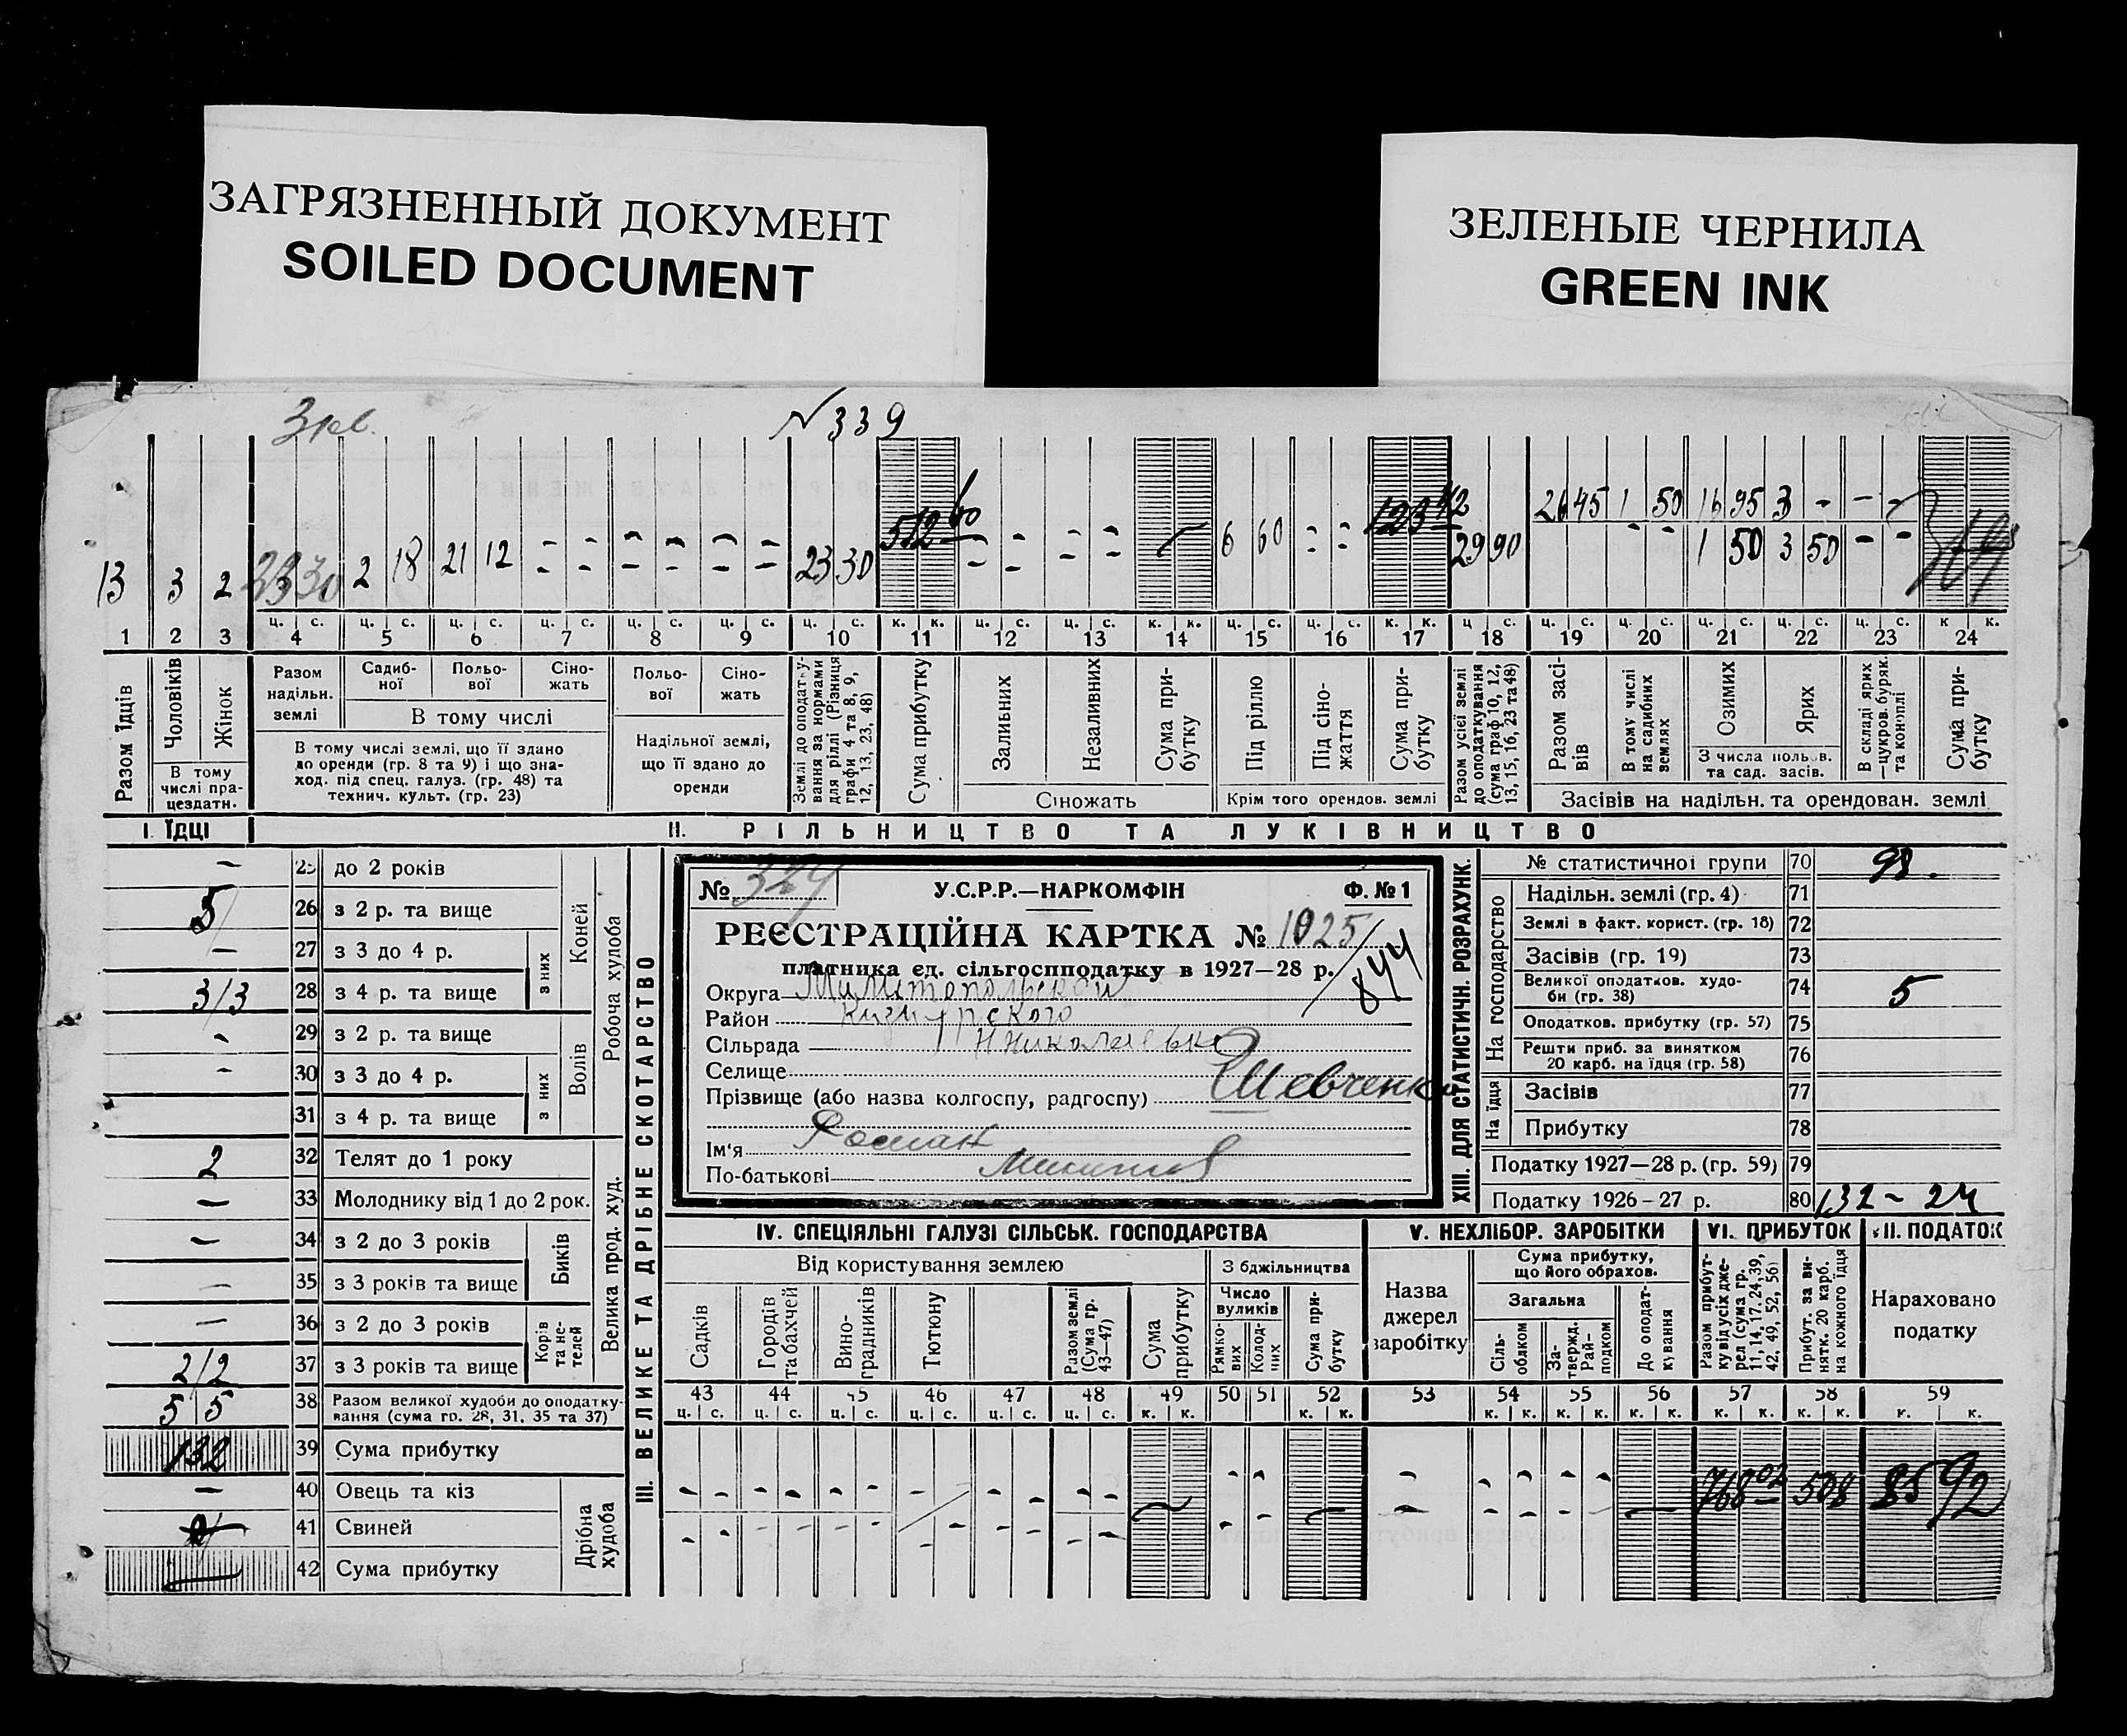 ЗАГРЯЗНЕННЫЙ ДОКУМЕНТ
SOILED DOCUMENT
ЗЕЛЕНЫЕ ЧЕРНИЛА
GREEN INK
N 339
60 42 2645 1 50 16 95 3 - - -
13 3 2 3330 2 18 21 12 - - - - - - 23 30 512 - - - - 6 60 - - 123 29 90 - - 1 50 3 50 - -
ц. с. ц. с. ц. с. ц. с. ц. с. ц. с. ц. с. к. к. ц. с. ц. с. к. к. ц. с. ц. с. к. к. ц с. ц. с. ц. с. ц. с. ц. с. ц. с. к к.
1 2 3 4 5 6 7 8 9 10 11 12 13 14 15 16 17 18 19 20 21 22 23 24
Разом їдців
Чоловіків
Жінок
В тому числі пра-
цездатн.
Разом
надільн.
землі
Садиб-
ної
Польо-
вої
Сіно-
жать
В тому числі
В тому числі землі, що її здано
до оренди (гр. 8 та 9) і що зна-
ход. під спец. галуз. (гр. 48) та
технич. культ. (гр. 23)
Польо-
вої
Сіно-
жать
Надільної землі,
що її здано до
оренди
Землі до оподатку-
вання за нормами
для ріллі (Різниця
графи 4 та 8, 9,
12, 13, 23, 48)
Сума прибутку
Заливних
Незаливних
Сума при-
бутку
Сіножать
Під ріллю
Під сіно-
жаття
Сума при-
бутку
Крім того орендов. землі
Разом усієї землі
до оподаткування
(сума граф 10, 12,
13, 15, 16, 23 та 48)
Разом засі-
вів
В тому числі
на садибних
землях
Озимих
Ярих
З числа польов.
та сад. засів.
В складі ярих
—цукров. буряк.
та коноплі
Сума при-
бутку
Засівів на надільн. та орендован. землі
І. ЇДЦІ
ІІ. РІЛЬНИЦТВО ТА ЛУКІВНИЦТВО
- 25 до 2 років
5 26 з 2 р. та вище
- 27 з 3 до 4 р.
3/3 28 з 4 р. та вище
- 29 з 2 р. та вище
- 30 з 3 до 4 р.
31 з 4 р. та вище
2 32 Телят до 1 року
- 33 Молоднику від 1 до 2 рок.
- 34 з 2 до 3 років
- 35 з 3 років та вище
- 36 з 2 до 3 років
2/2 37 з 3 років та вище
5/5 38 Разом великої худоби до оподатку-
вання (сума гр. 28, 31, 35 та 37)
132 39 Сума прибутку
- 40 Овець та кіз
41 Свиней
42 Сума прибутку
з них
Коней
з них
Волів
Робоча худоба
Биків
Корів
та не-
телей
Велика прод. худ.
Дрібна
худоба
ІІІ. ВЕЛИКЕ ТА ДРІБНЕ СКОТАРСТВО
№
У.С.Р.Р.—НАРКОМФІН
Ф. № 1
РЕЄСТРАЦІЙНА КАРТКА № 1025/
844
платника єд. сільгоспподатку в 1927—28 р.
Округа
Район
Сільрада
Селище
Прізвище (або назва колгоспу, радгоспу) Шевченко
Ім'я Роман
По-батькові
ХІІІ. ДЛЯ СТАТИСТИЧН. РОЗРАХУНК.
На господарство
На їдця
№ статистичної групи 70 98.
Надільн. землі (гр. 4) 71
Землі в факт. корист. (гр. 18) 72
Засівів (гр. 19) 73
Великої оподатков. худо-
би (гр. 38) 74 5
Оподатков. прибутку (гр. 57) 75
Решти приб. за винятком
20 карб. на їдця (гр. 58) 76
Засівів 77
Прибутку 78
Податку 1927—28 р. (гр. 59) 79
Податку 1926-27 р. 80 132-24
IV. СПЕЦІЯЛЬНІ ГАЛУЗІ СІЛЬСЬК. ГОСПОДАРСТВА
V. НЕХЛІБОР. ЗАРОБІТКИ
VI. ПРИБУТОК
ІІ. ПОДАТОК
Від користування землею
З бджільництва
Садків
Городів
та бахчей
Вино-
градників
Тютюну
Разом землі
(Сума гр.
43—47)
Сума
прибутку
Число
вуликів
Рямко-
вих
Колод-
них
Сума при-
бутку
Назва
джерел
заробітку
Сума прибутку,
що його обрахов.
Загальна
Сіль-
облком
За-
твердж.
Рай-
подком
До оподат-
кування
Разом прибут-
ку від усіх дже-
рел (сума гр.
11, 14, 17, 24, 39,
42, 49, 52, 56)
Прибут. за ви-
нятк. 20 карб.
на кожного їдця
Нараховано
податку
43 44 45 46 47 48 49 50 51 52 53 54 55 56 57 58 59
ц. с. ц. с. ц. с. ц. с. ц. с. ц. с. к. к. к. к. к. к. к. к. к. к. к. к. к. к. к. к.
768 02 508 85 92